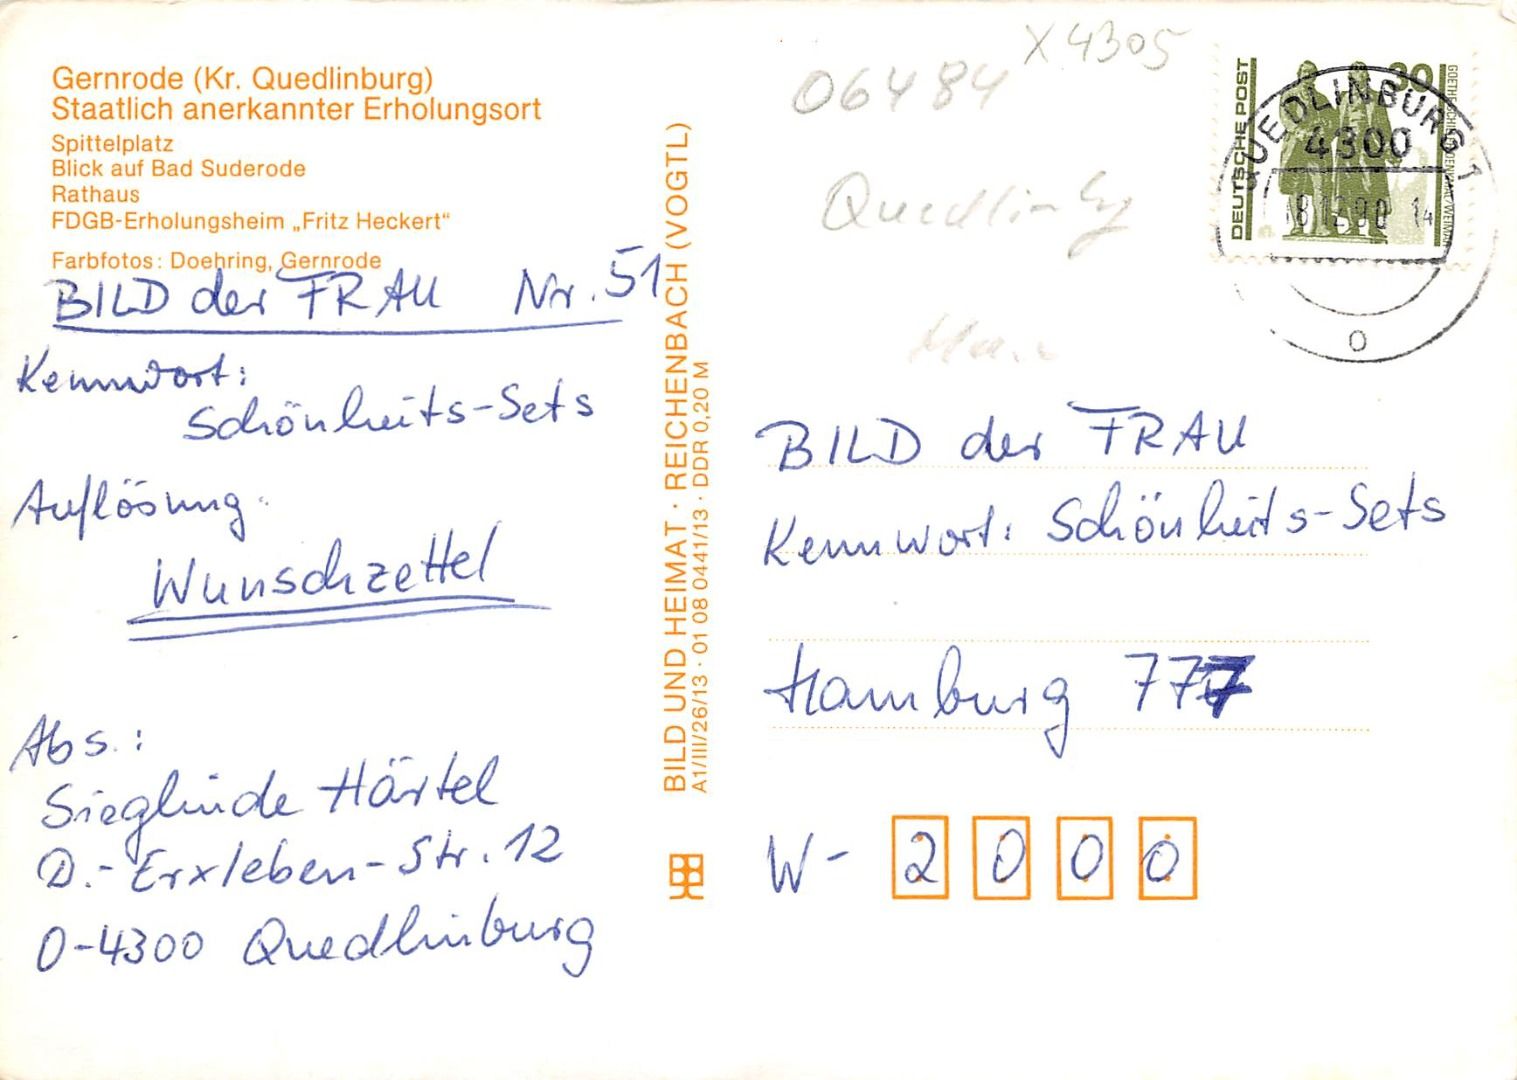 Gernrode (Kr. Quedlinburg)
Staatlich anerkannter Erholungsort
Spittelplatz
Blick auf Bad Suderode
Rathaus
FDGB-Erholungsheim „Fritz Heckert“
Farbfotos: Doehring, Gernrode
BILD der FRAU Nr. 51
Kennwort:
Schönheits-Sets
Auflösung:
Wunschzettel
Abs.:
Sieglinde Härtel
D.-Erxleben-Str. 12
O-4300 Quedlinburg
BILD UND HEIMAT · REICHENBACH (VOGTL)
A1/III/26/13 · 01 08 0441/13 · DDR 0,20 M
X 4305
06484
Quedlinbg
DEUTSCHE POST
30
QUEDLINBURG 1
4300
o
BILD der FRAU
Kennwort: Schönheits-Sets
Hamburg 777
W- 2000